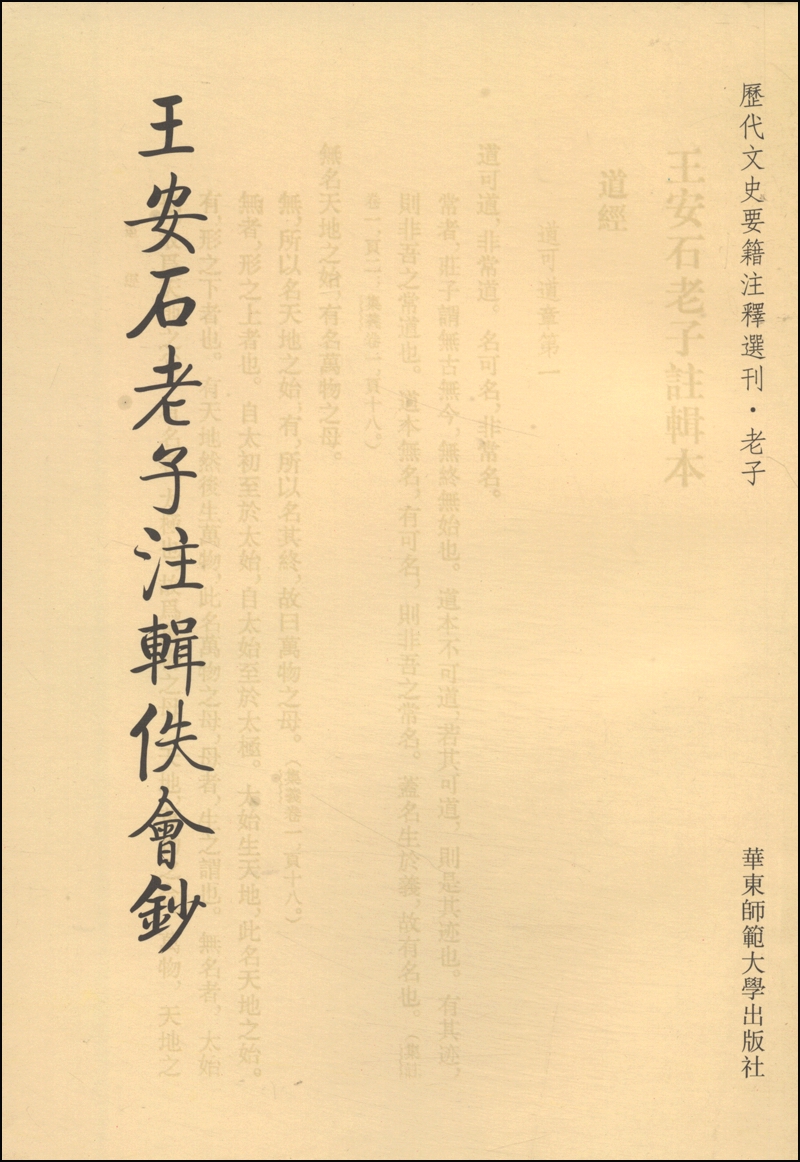 歷代文史要籍注釋選刊·老子
華東師範大學出版社
王安石老子注輯佚會鈔
王安石老子註輯本
道經
道可道章第一
道可道，非常道。名可名，非常名。
常者，莊子謂無古無今，無終無始也。道本不可道，若其可道，則是其迹也。有其迹，
則非吾之常道也。道本無名，有可名，則非吾之常名。蓋名生於義，故有名也。（集註
卷一，頁二；集義卷一，頁十八。）
無名天地之始，有名萬物之母。
無，所以名天地之始；有，所以名其終，故曰萬物之母。（集義卷一，頁十八。）
無者，形之上者也。自太初至於太始，自太始至於太極。太始生天地，此名天地之始。
有，形之下者也。有天地然後生萬物，此名萬物之母，母者，生之謂也。無名者，太始